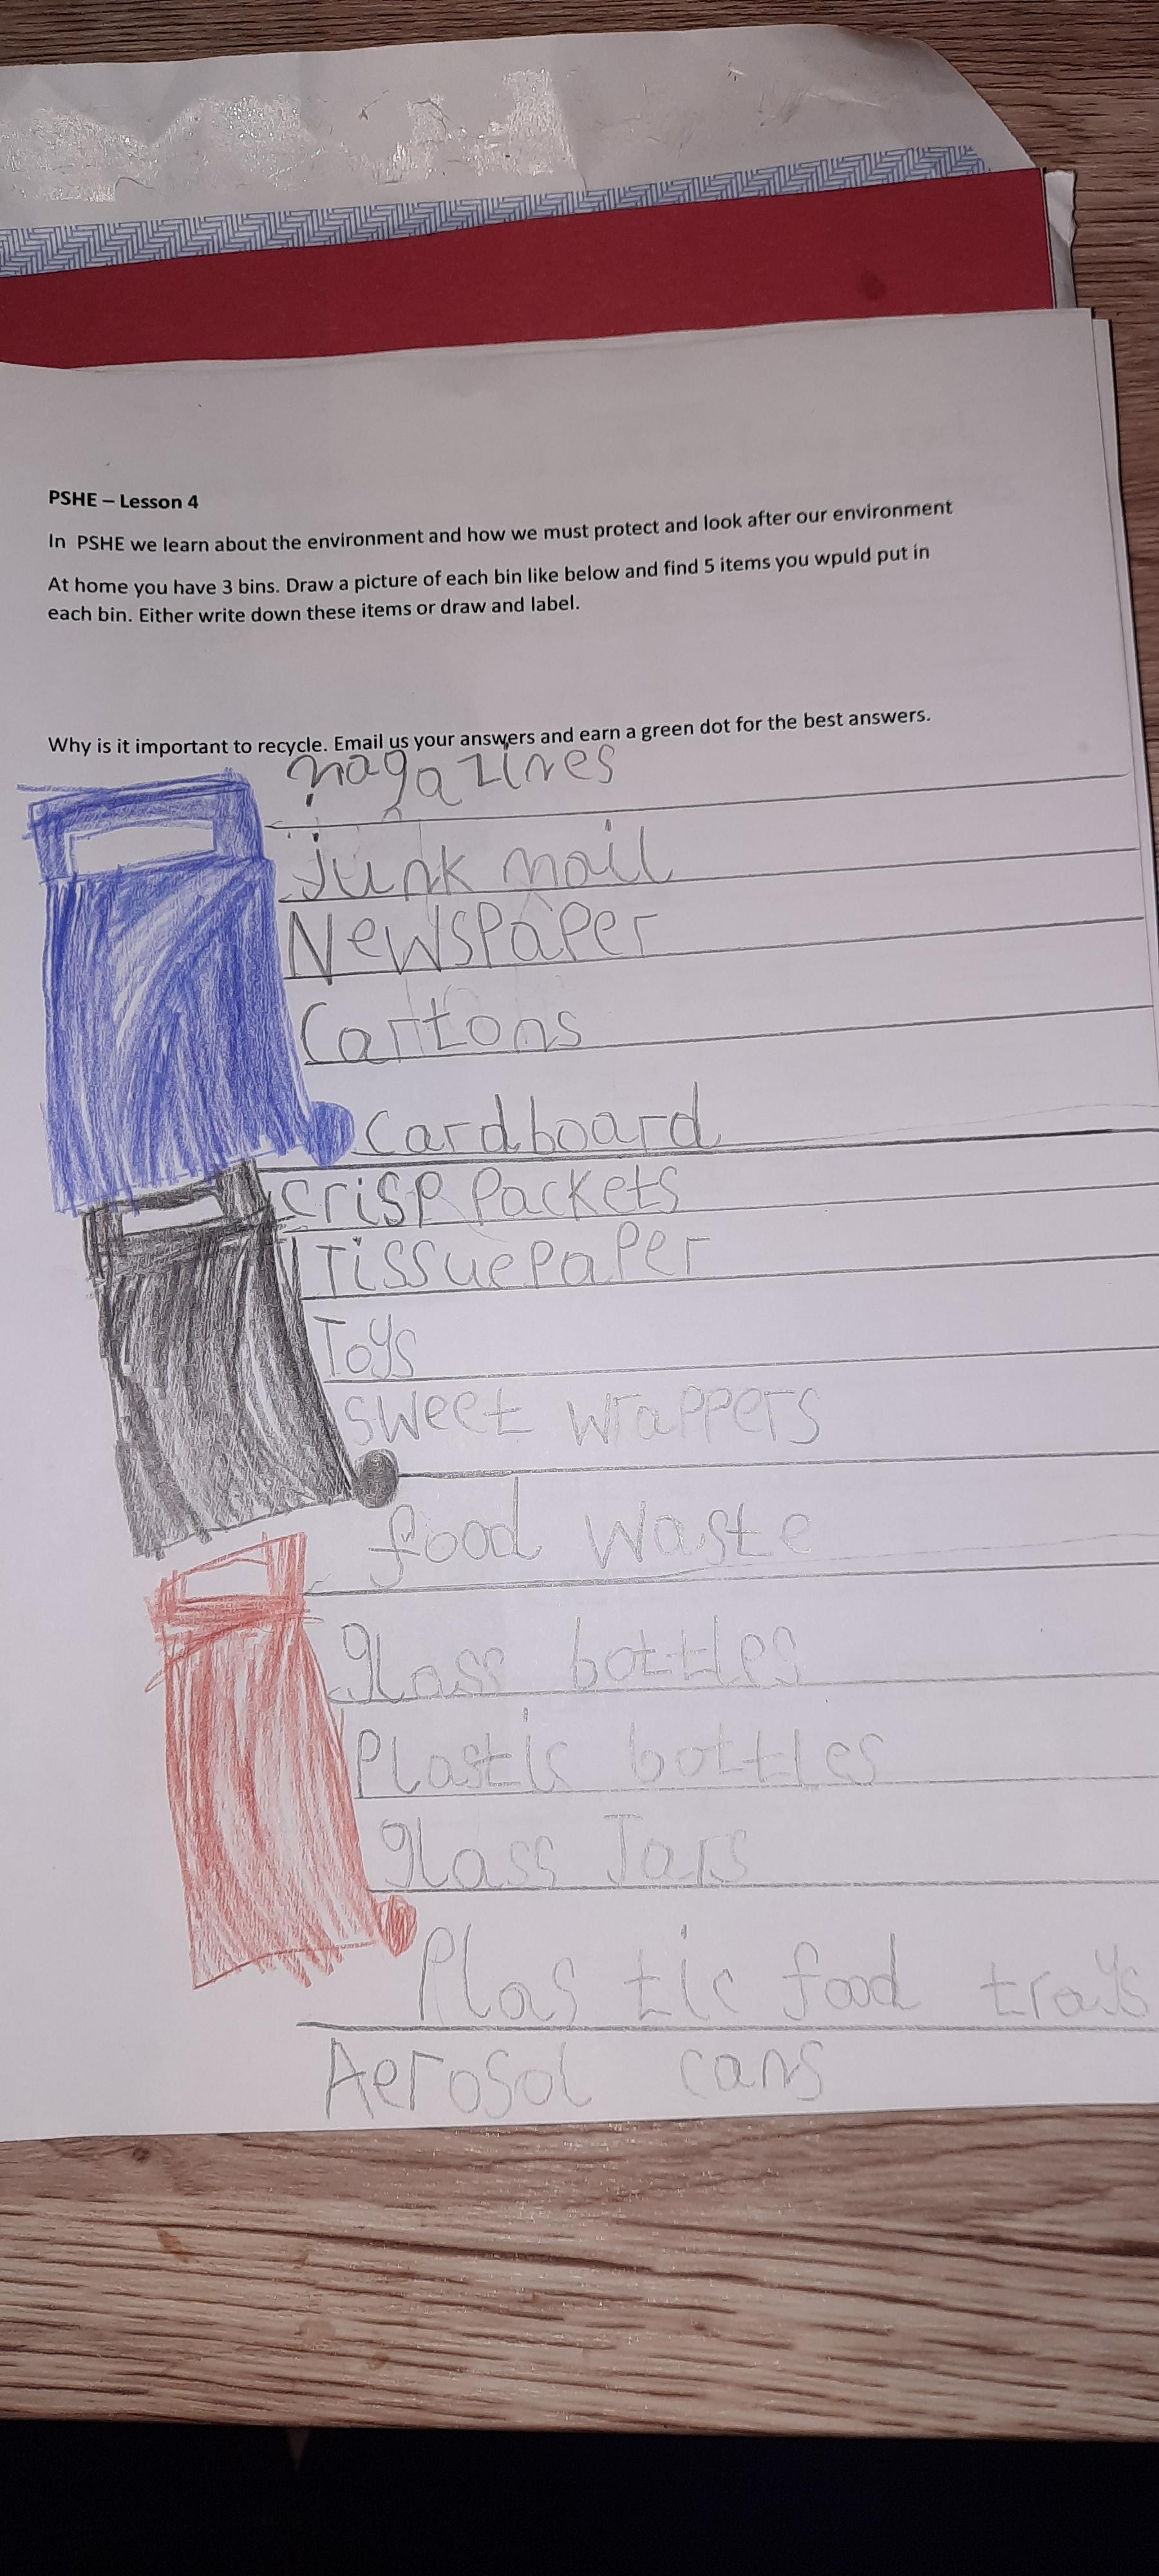 PSHE – Lesson 4
In PSHE we learn about the environment and how we must protect and look after our environment
At home you have 3 bins. Draw a picture of each bin like below and find 5 items you wpuld put in
each bin. Either write down these items or draw and label.
Why is it important to recycle. Email us your answers and earn a green dot for the best answers.
magazines
junk mail
Newspaper
Cartons
cardboard
crisp packets
Tissuepaper
Toys
sweet wrappers
food waste
glass bottles
Plastic bottles
glass Jars
Plastic food trays
Aerosol cans